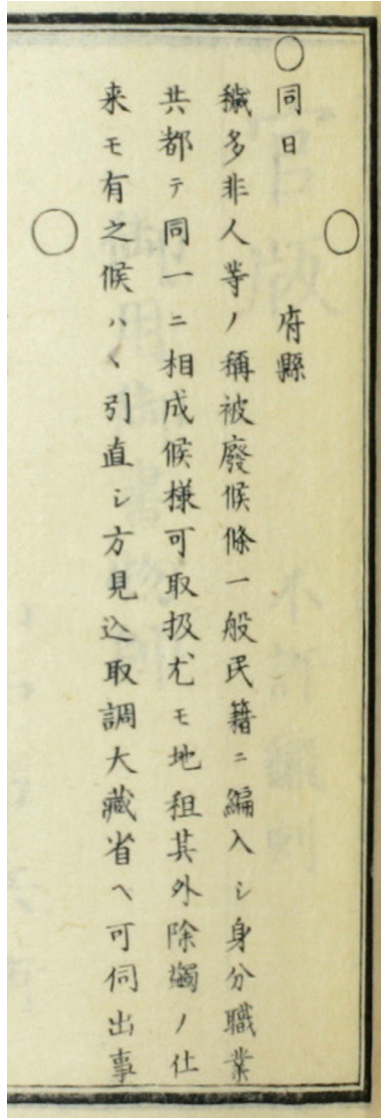 〇同日　府縣
穢多非人等ノ稱被廢候條一般民籍ニ編入シ身分職業
共都テ同一ニ相成候樣可取扱尤モ地租其外除蠲ノ仕
来モ有之候ハヽ引直シ方見込取調大藏省ヘ可伺出事